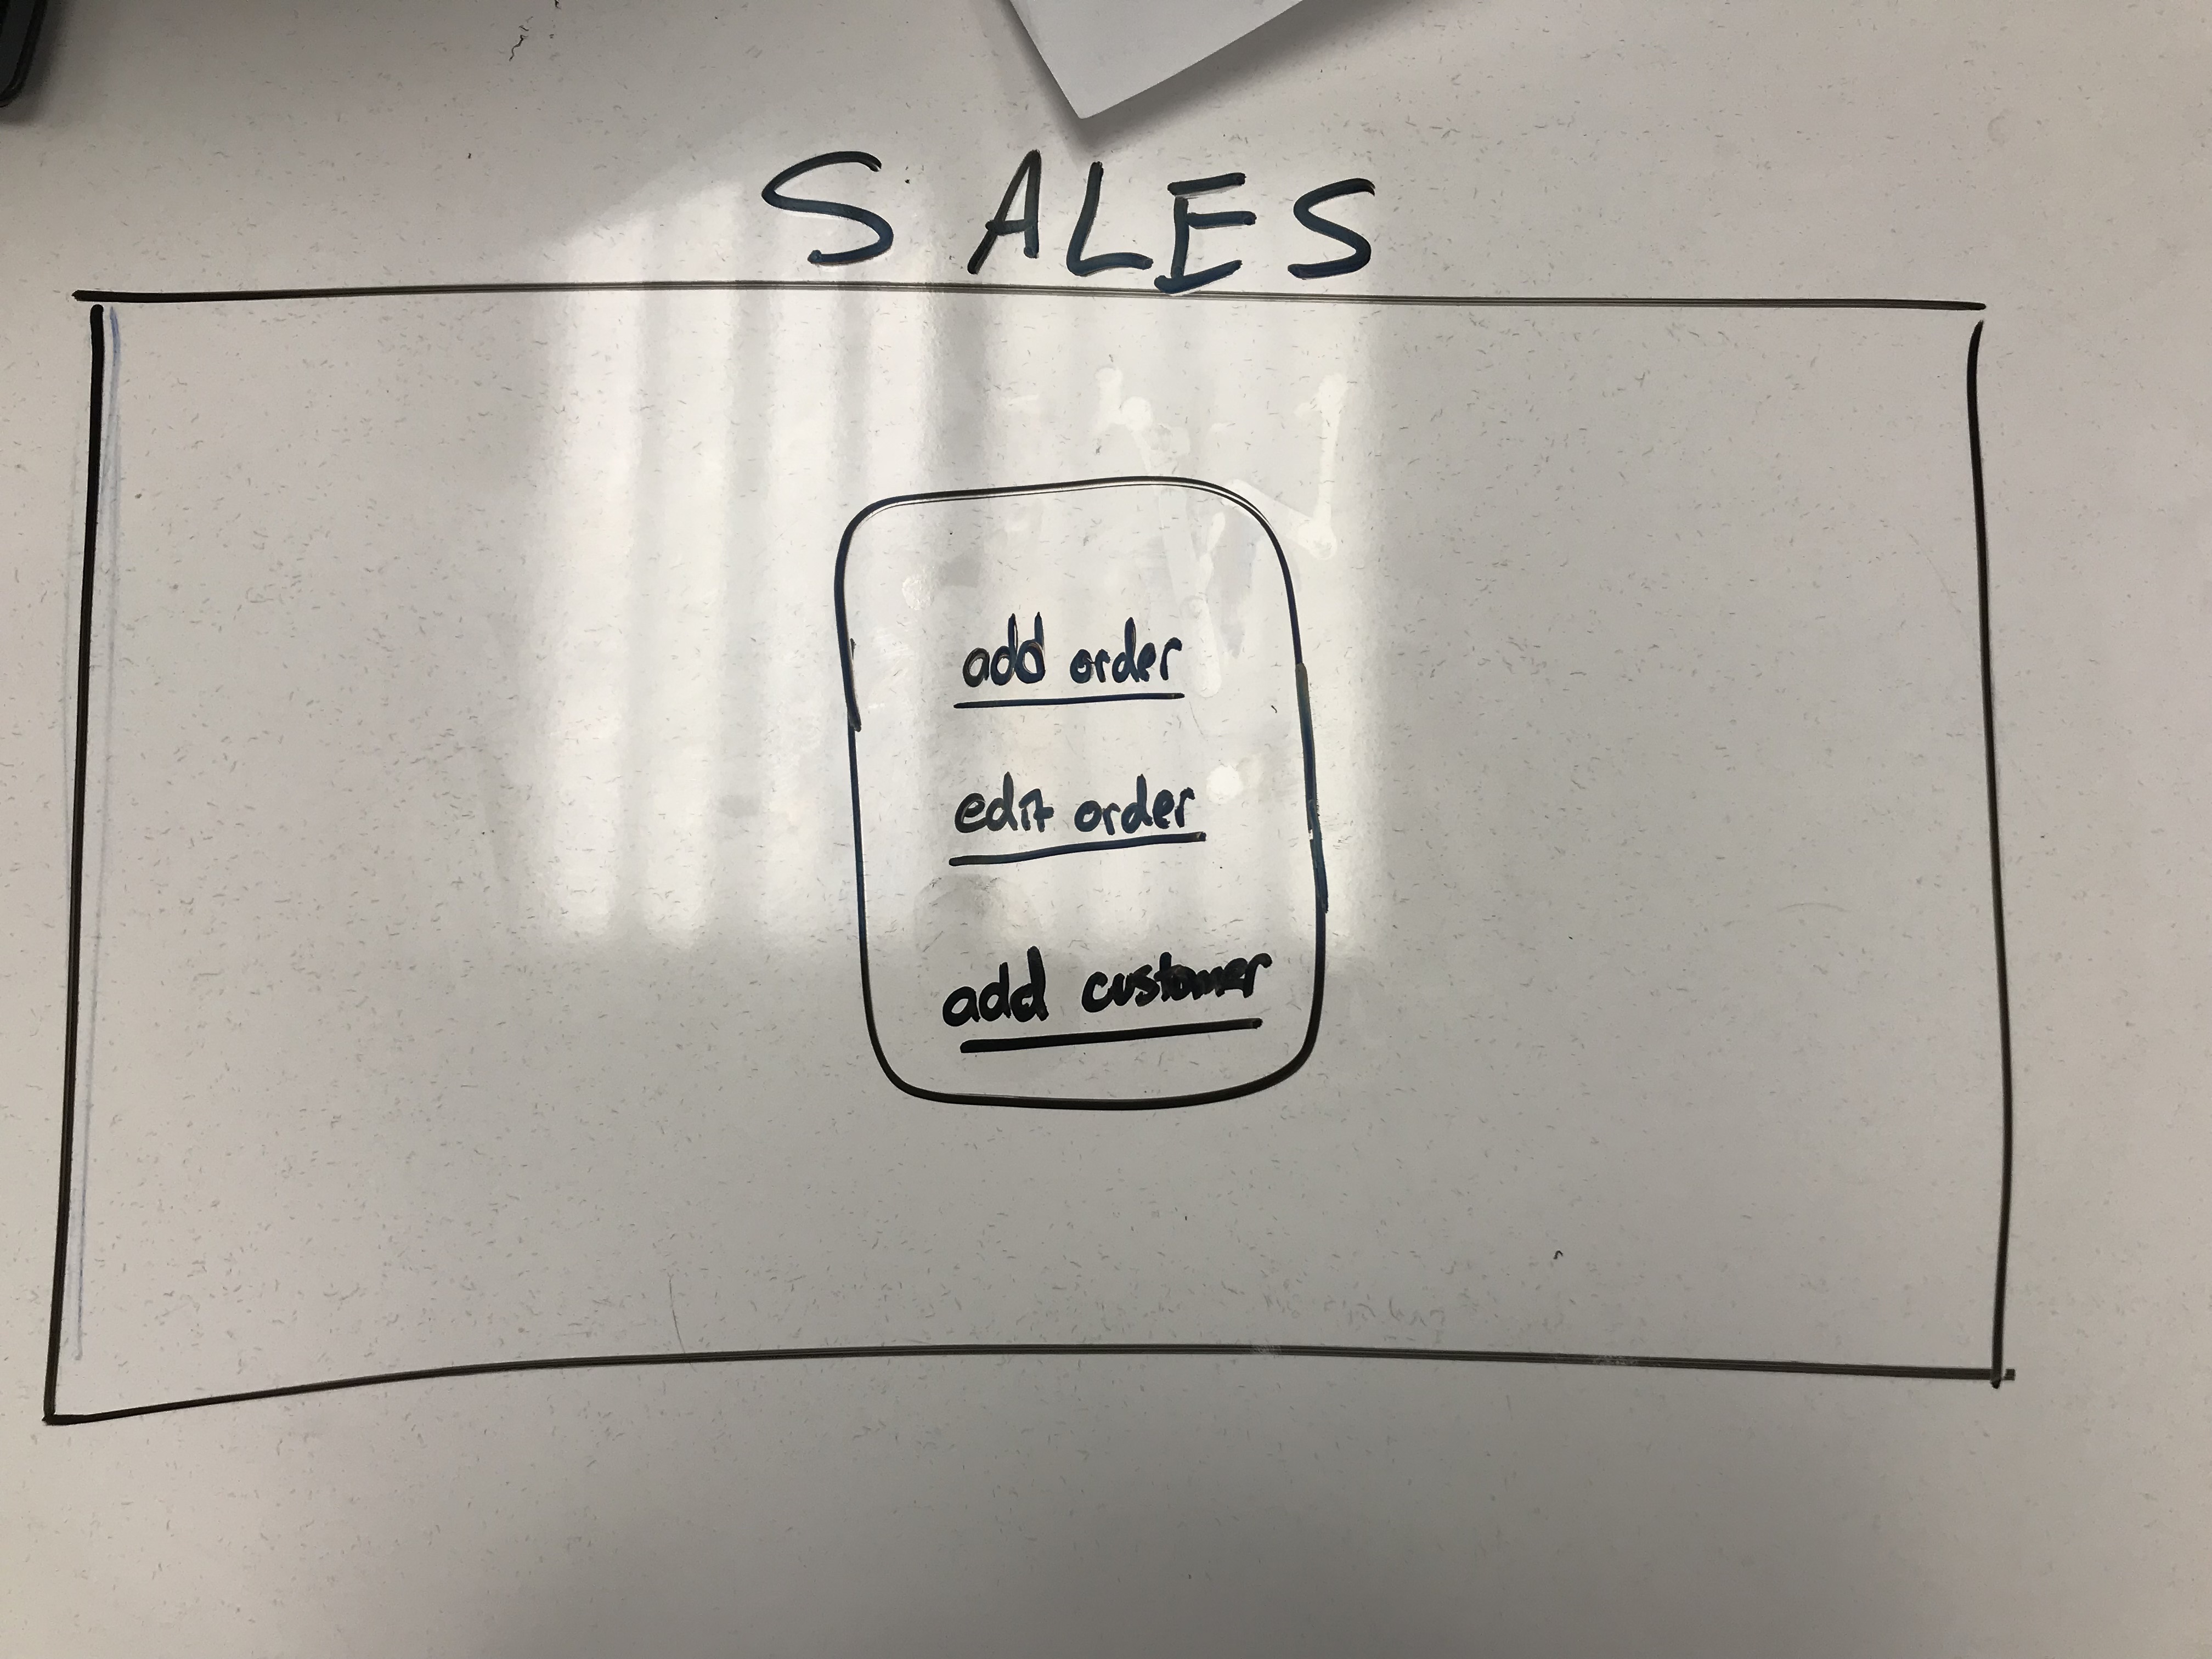 SALES
add order
edit order
add customer